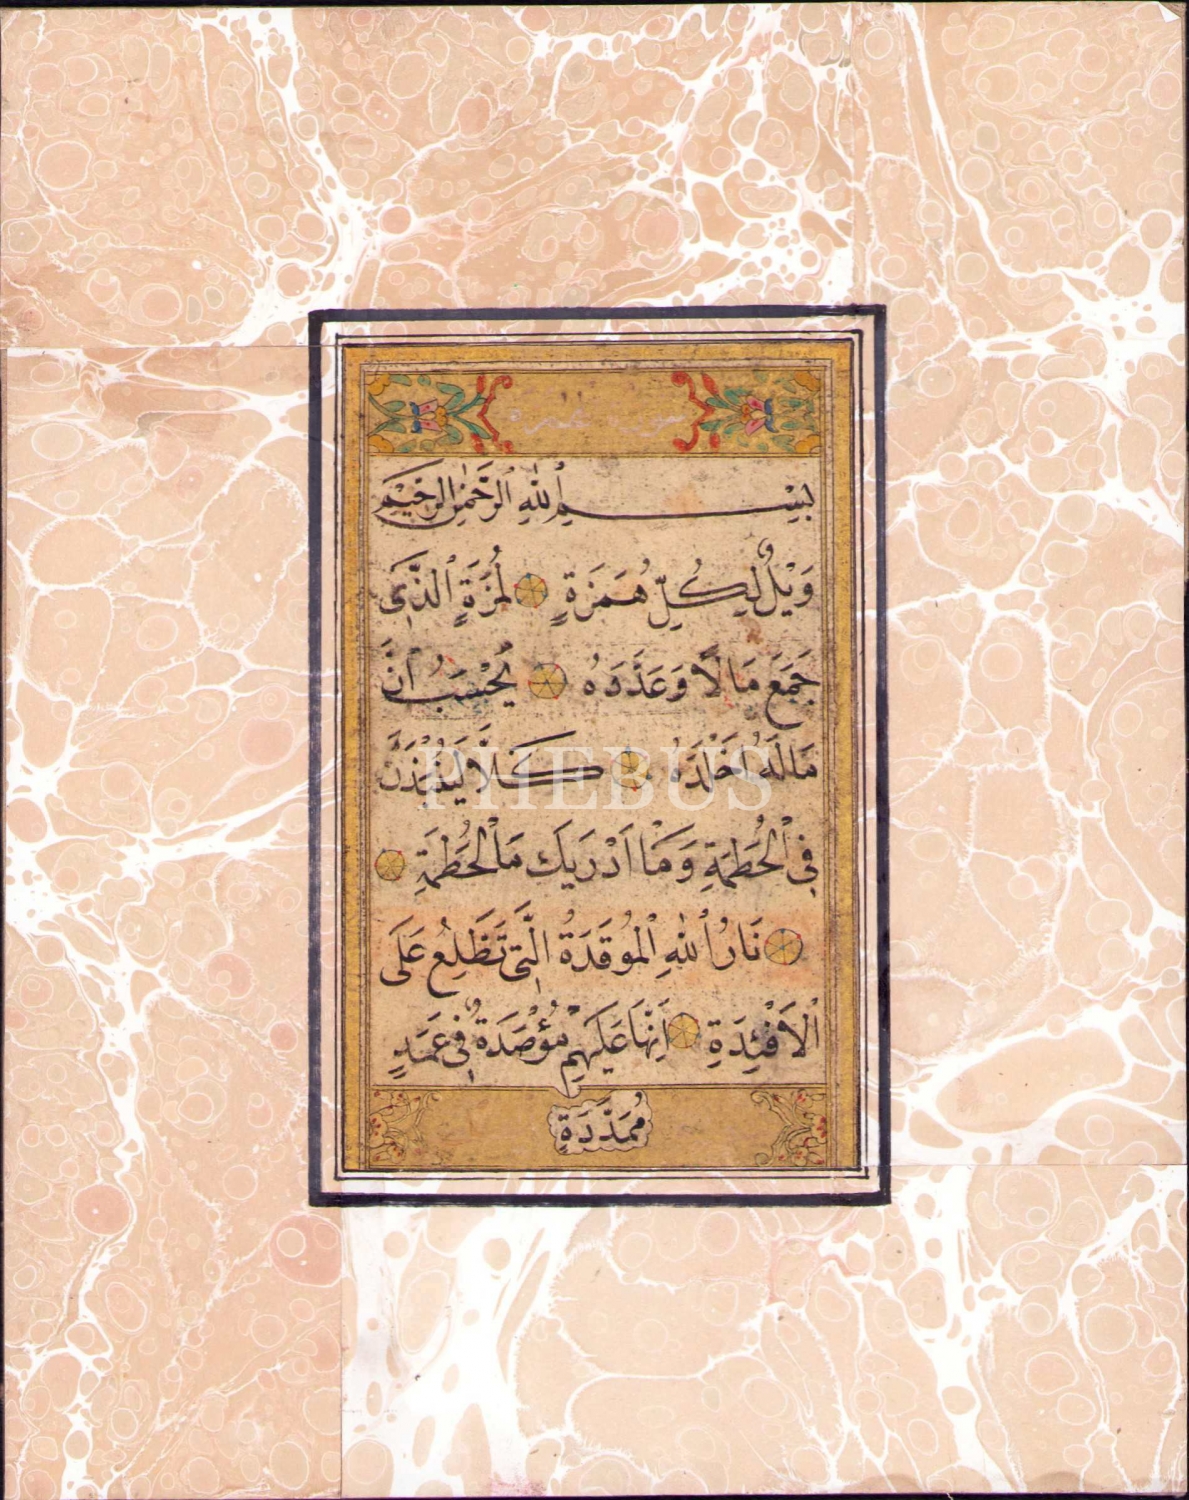 بِسْمِ اللّٰهِ الرَّحْمٰنِ الرَّحِيْمِ
وَيْلٌ لِكُلِّ هُمَزَةٍ لُمَزَةٍ الَّذِي
جَمَعَ مَالًا وَعَدَّدَهُ يَحْسَبُ اَنَّ
مَالَهُ اَخْلَدَهُ كَلَّا لَيُنْبَذَنَّ
فِي الْحُطَمَةِ وَمَا اَدْرَيكَ مَا الْحُطَمَةِ
نَارُ اللّٰهِ الْمُوقَدَةُ الَّتِي تَطَّلِعُ عَلَى
الْاَفْئِدَةِ اِنَّهَا عَلَيْهِمْ مُؤْصَدَةٌ فِي عَمَدٍ
مُمَدَّدَةٍ
PHEBUS